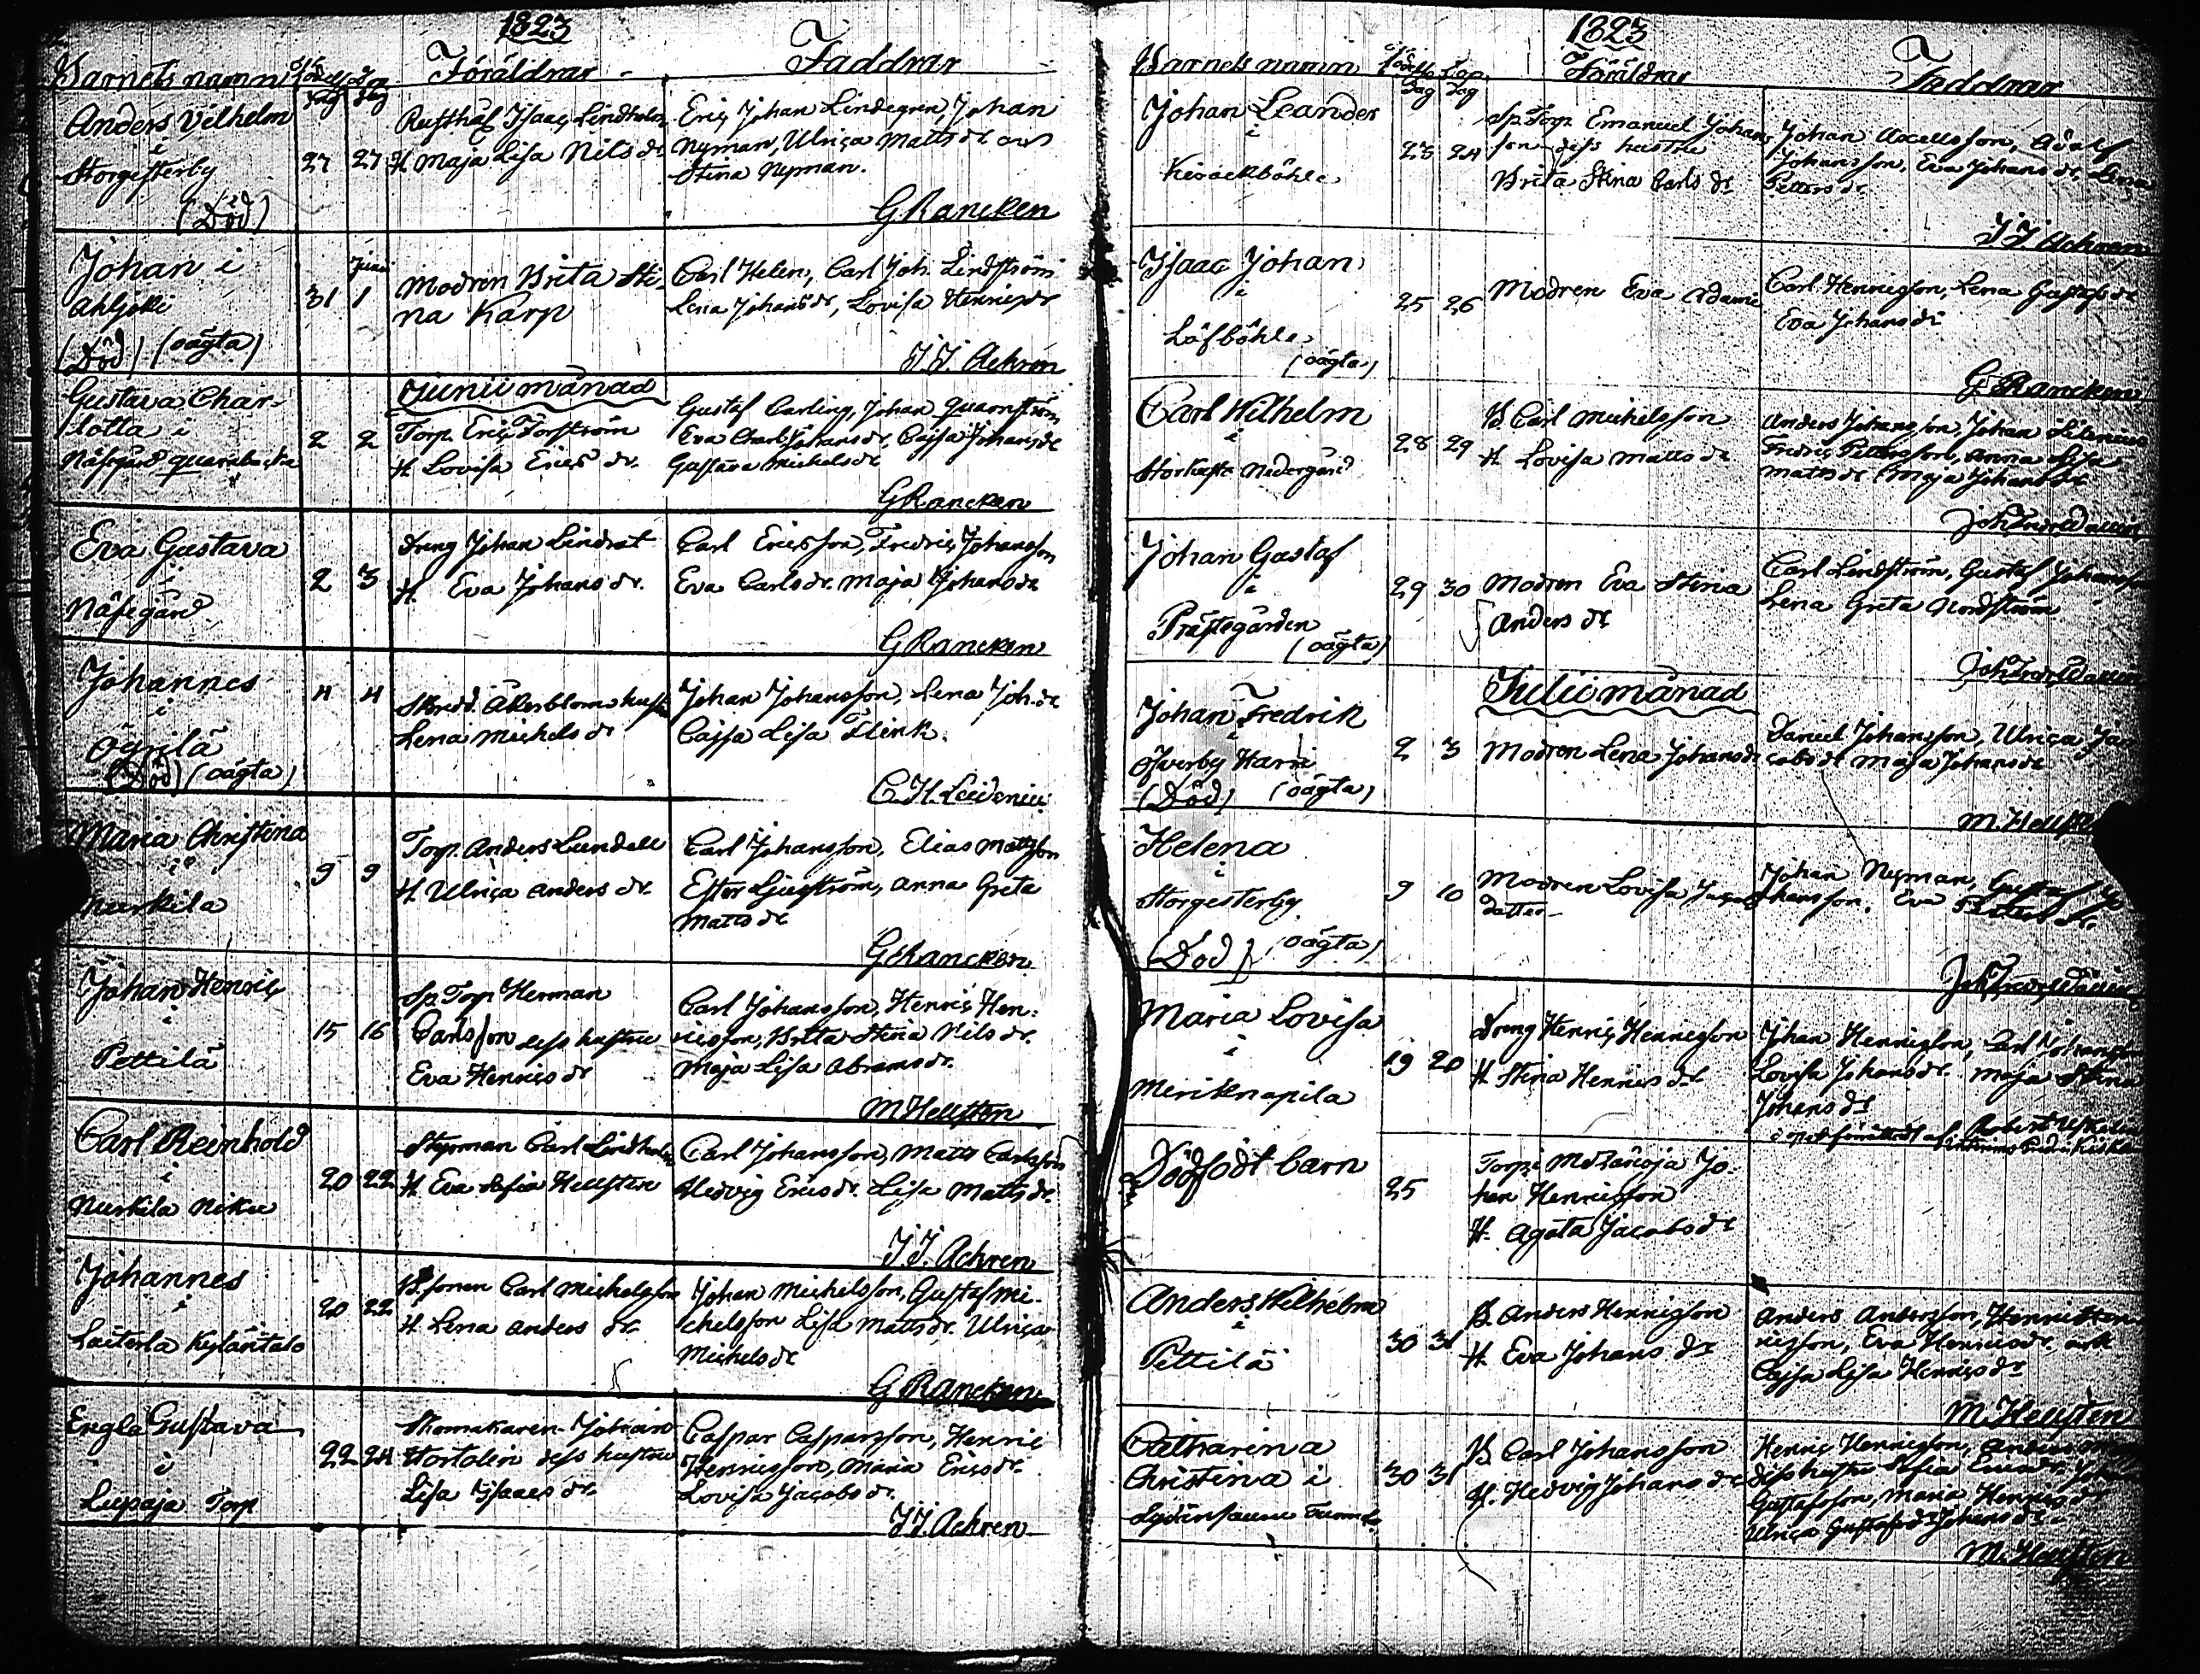 1823
Barnets namn Födelse dag Döp dag Föräldrar Faddrar
Anders Vilhelm
i
Storgesterby
(Död)
27 27
Rusthål Isaac Lindholm
H. Maja Lisa Nils dr
Eric Johan Lindegren, Johan
Nyman, Ulrica Matts dr och
Stina Nyman.
G Rancken
Johan i
(Död) (oägta)
31 Juni 1
Modren Brita Sti-
na Karp
Carl Helen, Carl Joh. Lindström
Lena Johansdr, Lovisa Henricsdr
J J. Achrén
Junii månad
Gustava Char-
lotta i
Näsegård
2 2
Torp. Eric Forsström
H Lovisa Erics dr.
Gustaf Carling, Johan Quarnström
Eva Charl. Johansdr, Cajsa Johansdr
Gustava Michelsdr
G Rancken
Eva Gustava
i
Näsegård
2 3
Dreng Johan Lindrot
H. Eva Johans dr.
Carl Ericsson, Fredric Johansson
Eva Carlsdr. Maja Johansdr
G Rancken
Johannes
i
Öyrilä
(Död) (oägta)
4 4
Skredd. Åkerbloms hustru
Lena Michels dr
Johan Johansson, Lena Joh.dr
Cajsa Lisa Flink.
Maria Christina
i
Nurkila
9 9
Torp. Anders Lundell
H. Ulrica Anders dr.
Carl Johansson, Elias Mattsson
Ester Ljungström, Anna Greta
Matts dr
G Rancken
Johan Henric
i
Pettilä
15 16
Sp Torp Herman
Carlsson dess hustru
Eva Henrics dr
Carl Johansson, Henric Hen-
ricsson, Brita Stina Nils dr.
Maja Lisa Abramsdr.
M Hellsten
Carl Reinhold
i
Nurkila Niku
20 22
Styrman Carl Lindholm
H Eva Sofia Hellsten
Carl Johansson, Matts Carlsson
Hedvig Ericsdr. Lisa Mattsdr.
J J. Achren
Johannes
i
Laiterla Kyläntalo
20 22
B.sonen Carl Michelsson
H. Lena Anders dr.
Johan Michelsson, Gustaf Mi-
chelsson Lisa Matts dr. Ulrica
Michelsdr
G Rancken
Engla Gustava
i
Lupaja Torp
22 24
Skomakaren Johan
Hortolin dess hustru
Lisa Isaacs dr.
Caspar Casparsson, Henric
Henricsson, Maria Ericsdr.
Lovisa Jacobs dr.
J J. Achren
1823
Barnets namn Födelse Dag Döp Dag Föräldrar Faddrar
Johan Leander
i
Kirackböhle
23 24
Sp. Torp. Emanuel Johans
son dess hustru
Brita Stina Carls dr
Johan Axellsson, Adolf
Johansson, Eva Johans dr, Lena
Petters dr.
J J Achren
Isaac Johan
i
Löfböhle
(oägta)
25 26
Modren Eva Adami
Carl Henricson, Lena Gustafs dr
Eva Johans dr
G Rancken
Carl Wilhelm
i
Nedergård
28 29
B. Carl Michelsson
H Lovisa Matts dr
Anders Johansson, Johan
Fredric Pettersson, Anna Lisa
Matts dr Maja Johans dr
Johan Gustaf
i
Prästegården
(oägta)
29 30
Modren Eva Stina
Anders dr
Carl Lindström, Gustaf Johansson
Lena Greta Nordström
Julii månad
Johan Fredrik
i
Öfverby Harri
(Död) (oägta)
2 3
Modren Lena Johansdr
Daniel Johansson, Ulrica Ja-
cobs dr Maja Johansdr
M. Hellsten
Helena
i
Storgesterby
(Död) (oägta)
9 10
Modren Lovisa
dotter
Johan Nyman, Gustaf Jo-
hansson, Eva Petters dr.
Maria Lovisa
i
Meriknapila
19 20
Dreng Henric Henricsson
H Stina Henrics dr
Johan Henricson, Carl Johansson
Lovisa Johans dr. Maja Stina
Johans dr
Dödfödt barn
25
Torp i Jo-
han Henricsson
H. Agata Jacobs dr
Anders Wilhelm
i
Pettilä
30 31
B. Anders Henricson
H. Eva Johans dr
Anders Andersson, Henric Hen-
ricsson, Eva Henricsdr. och
Cajsa Lisa Henrics dr
M. Hellsten
Catharina
Christina i
30 31
B Carl Johansson
H. Hedvig Johans dr
Henric Henricson, Anders
dess hustru Sofia Ericsdr. Johan
Gustafsson, Maria Henrics dr
Ulrica Johans dr
M. Hellsten